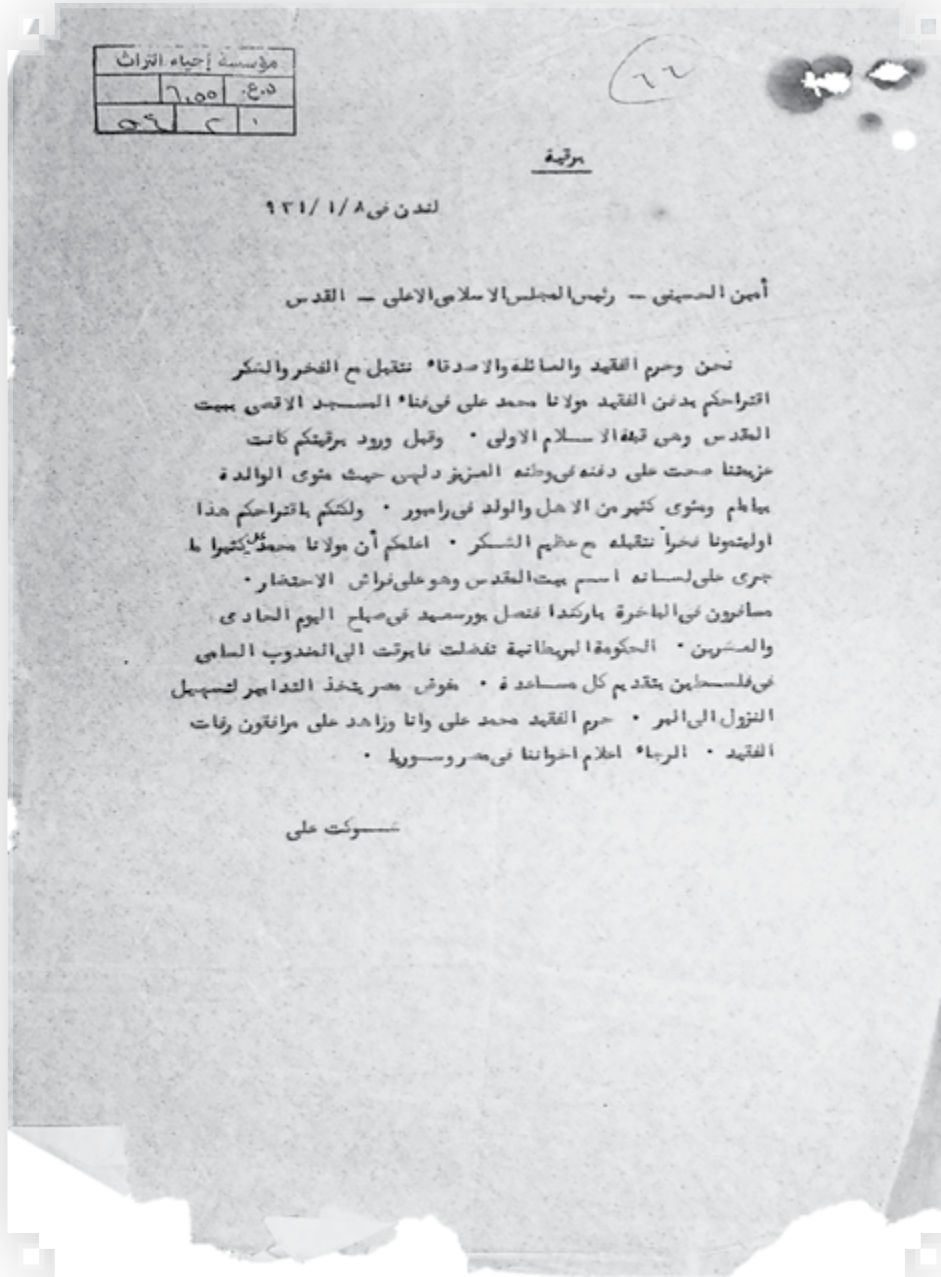 مؤسسة إحياء التراث
د.ع. ٦,٥٥
١ ٢ ٥٤
٦٦
برقية
لندن فى ٨/ ١/ ٩٣١
أمين الحسينى — رئيس المجلس الاسلامى الاعلى — القدس
نحن وحرم الفقيد والعائلة والاصدقاء نتقبل مع الفخر والشكر
اقتراحكم بدفن الفقيد مولانا محمد على فى فناء المسجد الاقصى ببيت
المقدس وهى قبلة الاسلام الاولى . وقبل ورود برقيتكم كانت
عزيمتنا صحت على دفنه فى وطنه العزيز دلهى حيث مثوى الوالدة
ومثوى كثير من الاهل والولد فى رامبور . ولكنكم باقتراحكم هذا
اوليتمونا فخراً نتقبله مع عظيم الشكر . اعلمكم أن مولانا محمد على كثيرا ما
جرى على لسانه اسم بيت المقدس وهو على فراش الاحتضار .
مسافرون فى الباخرة ناركندا فنصل بورسعيد فى صباح اليوم الحادى
والعشرين . الحكومة البريطانية تفضلت فابرقت الى المندوب السامى
فى فلسطين بتقديم كل مساعدة . مفوض مصر يتخذ التدابير لتسهيل
النزول الى البر . حرم الفقيد محمد على وانا وزاهد على مرافقون رفات
الفقيد . الرجاء اعلام اخواننا فى مصر وسوريا .
شوكت على